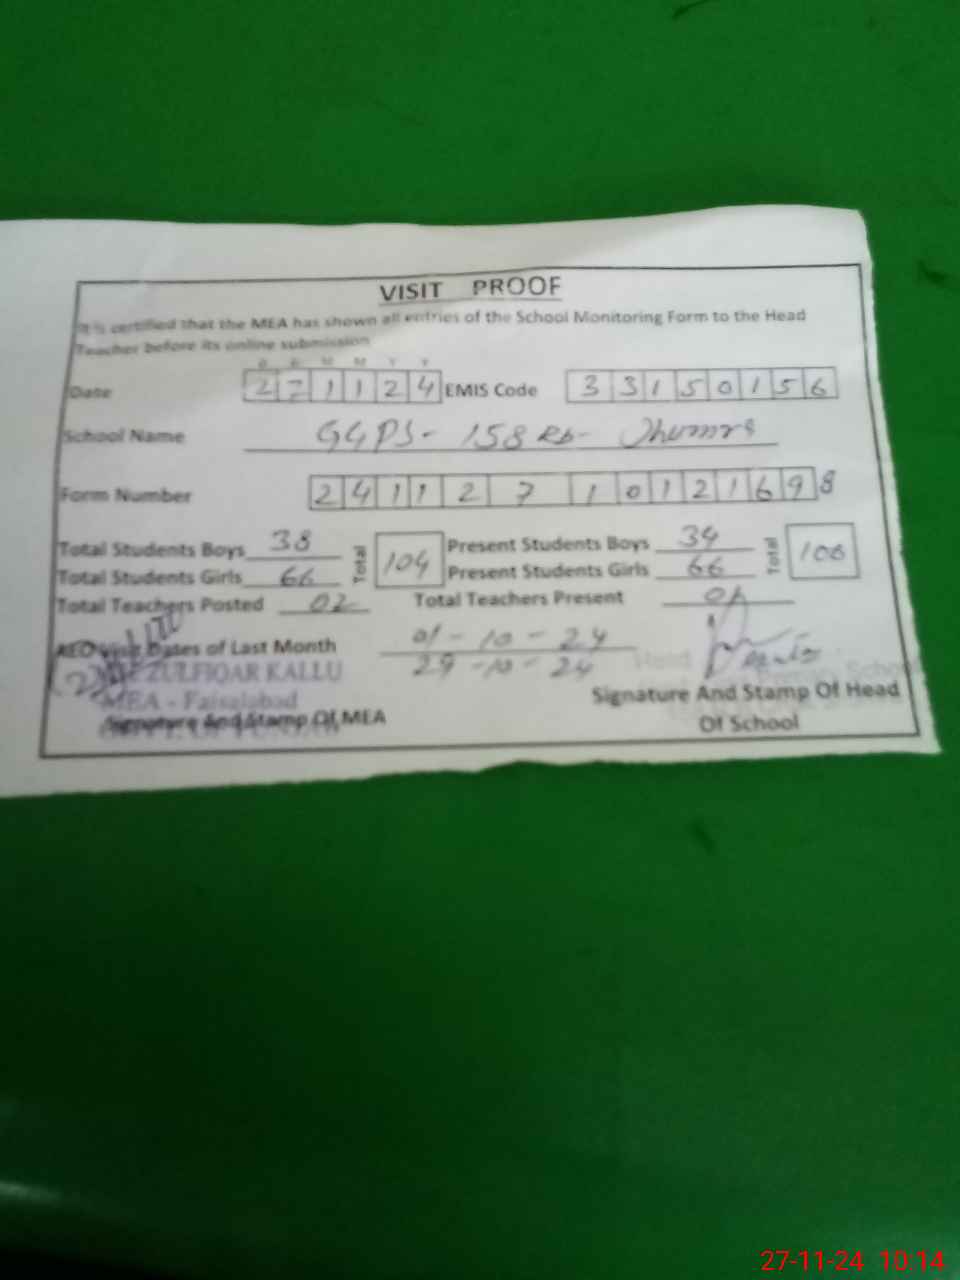 VISIT PROOF
It is certified that the MEA has shown all entries of the School Monitoring Form to the Head
Teacher before its online submission
D D M M Y Y
Date 271124 EMIS Code 33150156
School Name GGPS- 158 RB-
Form Number 2411271012121698
Total Students Boys 38 Total 104 Present Students Boys 34 Total 100
Total Students Girls 66 Present Students Girls 66
Total Teachers Posted 02 Total Teachers Present
AEO Visit Dates of Last Month 01-10-24
29-10-24
ZULFIQAR KALLU
MEA - Faisalabad
Signature And Stamp Of MEA
GOVT. OF PUNJAB
Head
Signature And Stamp Of Head
Of School
27-11-24 10:14